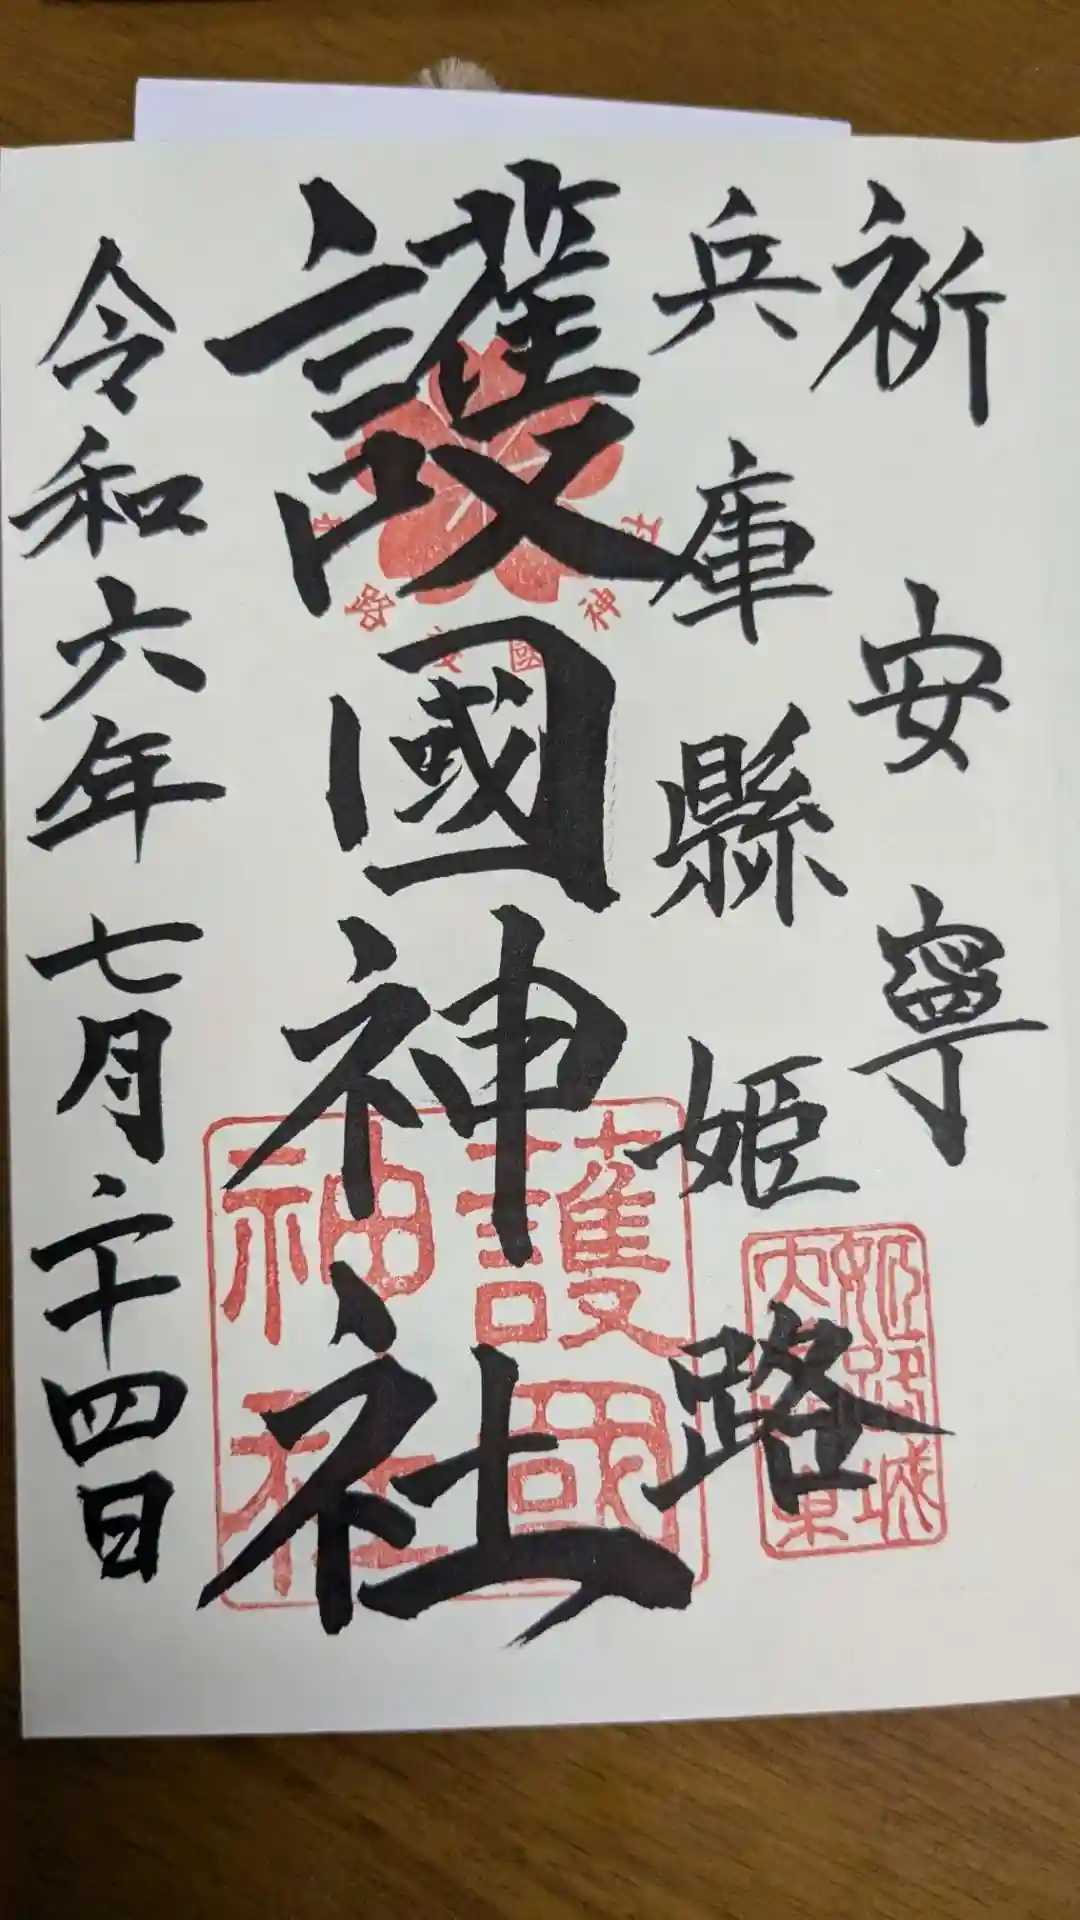 祈安寧
兵庫縣姫路
護國神社
令和六年七月二十四日
護國
神社
姫路城
神
國
路